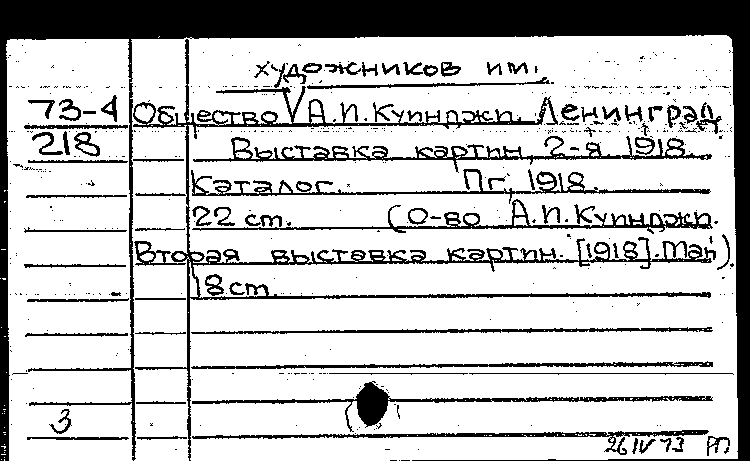 художников им.
73-4 Общество V А.И.Куинджи. Ленинград
218 Выставка картин, 2-я 1918.
Каталог. Пг, 1918.
22 ст. (О-во А.И.Куинджи.
Вторая выставка картин. [1918]. Май)
18 ст.
3
26 IV 73 РП